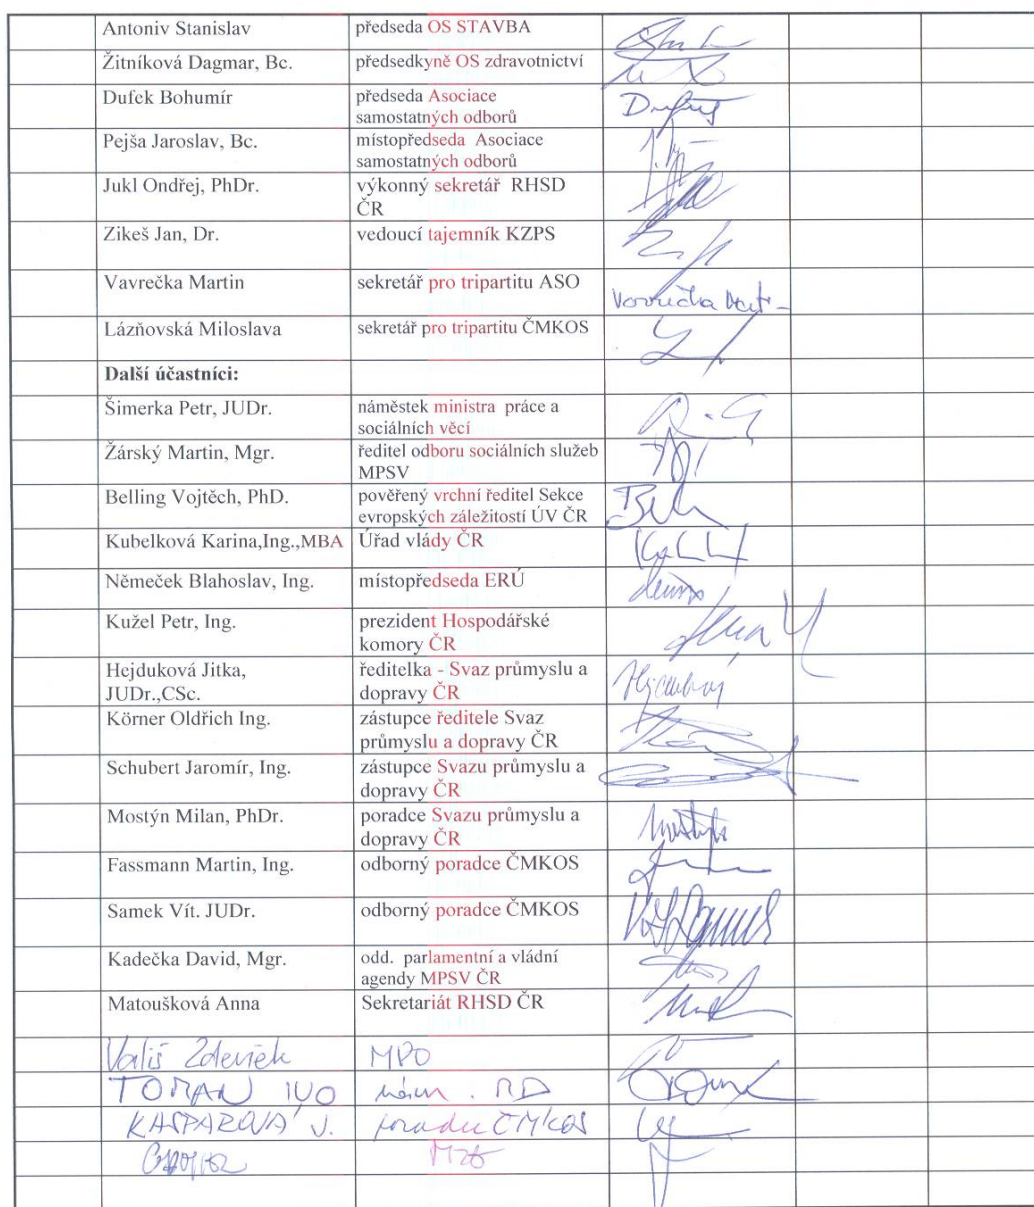 Antoniv Stanislav předseda OS STAVBA
Žitníková Dagmar, Bc. předsedkyně OS zdravotnictví
Dufek Bohumír předseda Asociace
samostatných odborů
Pejša Jaroslav, Bc. místopředseda Asociace
samostatných odborů
Jukl Ondřej, PhDr. výkonný sekretář RHSD
ČR
Zikeš Jan, Dr. vedoucí tajemník KZPS
Vavrečka Martin sekretář pro tripartitu ASO
Lázňovská Miloslava sekretář pro tripartitu ČMKOS
Další účastníci:
Šimerka Petr, JUDr. náměstek ministra práce a
sociálních věcí
Žárský Martin, Mgr. ředitel odboru sociálních služeb
MPSV
Belling Vojtěch, PhD. pověřený vrchní ředitel Sekce
evropských záležitostí ÚV ČR
Kubelková Karina,Ing.,MBA Úřad vlády ČR
Němeček Blahoslav, Ing. místopředseda ERÚ
Kužel Petr, Ing. prezident Hospodářské
komory ČR
Hejduková Jitka, ředitelka - Svaz průmyslu a
JUDr.,CSc. dopravy ČR
Körner Oldřich Ing. zástupce ředitele Svaz
průmyslu a dopravy ČR
Schubert Jaromír, Ing. zástupce Svazu průmyslu a
dopravy ČR
Mostýn Milan, PhDr. poradce Svazu průmyslu a
dopravy ČR
Fassmann Martin, Ing. odborný poradce ČMKOS
Samek Vít. JUDr. odborný poradce ČMKOS
Kadečka David, Mgr. odd. parlamentní a vládní
agendy MPSV ČR
Matoušková Anna Sekretariát RHSD ČR
Vališ Zdeněk MPO
TOMAN IVO nám. MD
KAŠPAROVÁ J. poradce ČMKOS